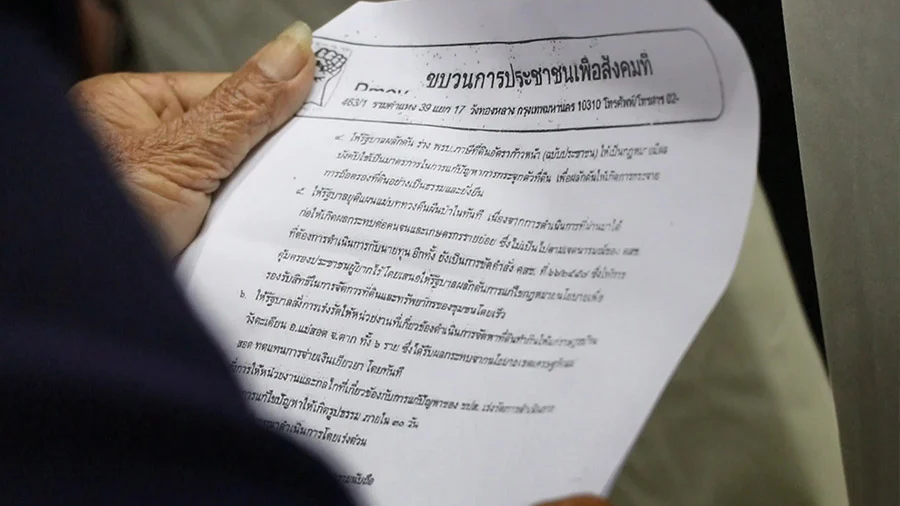 ขบวนการประชาชนเพื่อสังคมที่
Pmov
463/1 รามคำแหง 39 แยก 17 วังทองหลาง กรุงเทพมหานคร 10310 โทรศัพท์/โทรสาร 02-
๔. ให้รัฐบาลผลักดัน ร่าง พรบ.ภาษีที่ดินอัตราก้าวหน้า (ฉบับประชาชน) ให้เป็นกฎหมายมีผล
บังคับใช้เป็นมาตรการในการแก้ปัญหาการกระจุกตัวที่ดิน เพื่อผลักดันให้เกิดการกระจาย
การถือครองที่ดินอย่างเป็นธรรมและยั่งยืน
๕. ให้รัฐบาลยุติแผนแม่บททวงคืนผืนป่าในทันที เนื่องจากการดำเนินการที่ผ่านมาได้
ก่อให้เกิดผลกระทบต่อคนจนและเกษตรกรรายย่อย ซึ่งไม่เป็นไปตามเจตนารมณ์ของ คสช.
ที่ต้องการดำเนินการกับนายทุน อีกทั้ง ยังเป็นการขัดคำสั่ง คสช. ที่ ๖๖/๒๕๕๗ ซึ่งให้การ
คุ้มครองประชาชนผู้ยากไร้ โดยเสนอให้รัฐบาลผลักดันการแก้ไขกฎหมายนโยบายเพื่อ
รองรับสิทธิในการจัดการที่ดินและทรัพยากรของชุมชนโดยเร็ว
๖. ให้รัฐบาลสั่งการเร่งรัดให้หน่วยงานที่เกี่ยวข้องดำเนินการจัดหาที่ดินทำกินให้แก่ราษฎรบ้าน
วังตะเคียน อ.แม่สอด จ.ตาก ทั้ง ๖ ราย ซึ่งได้รับผลกระทบจากนโยบายเขตเศรษฐกิจแม่
สอด ทดแทนการจ่ายเงินเยียวยา โดยทันที
การให้หน่วยงานและกลไกที่เกี่ยวข้องกับการแก้ปัญหาของ ขปส. เร่งรัดการดำเนินการ
การแก้ไขปัญหาให้เกิดรูปธรรม ภายใน ๓๐ วัน
ดำเนินการโดยเร่งด่วน